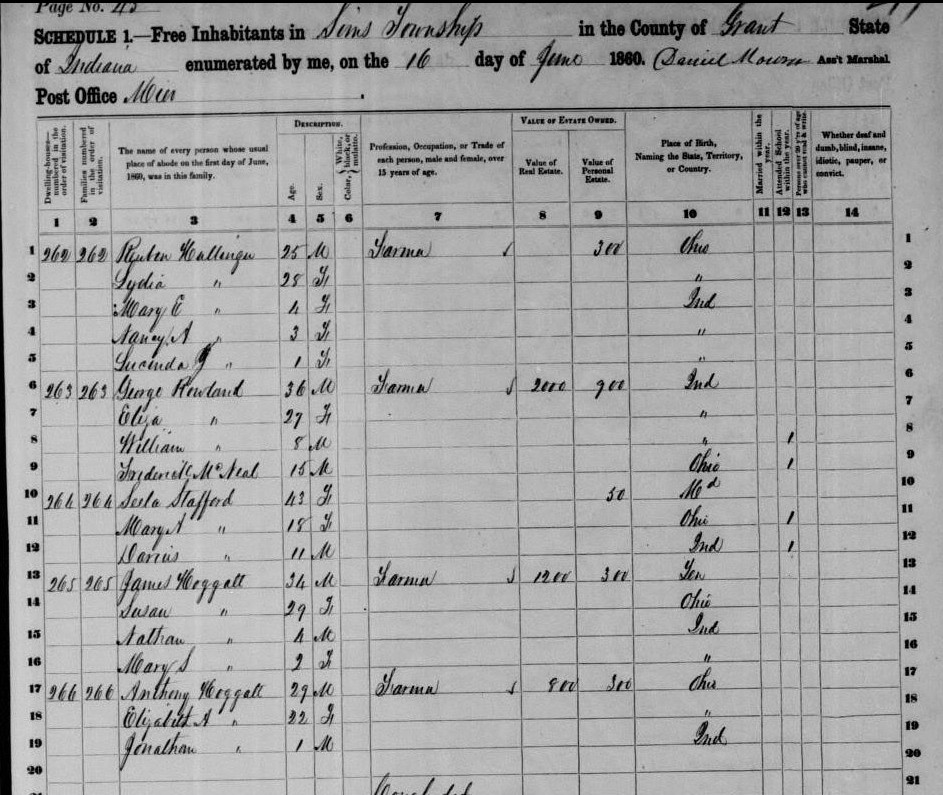 Page No. 43
SCHEDULE 1.—Free Inhabitants in Sims Township in the County of Grant State
of Indiana enumerated by me, on the 16 day of June 1860. Daniel Ass't Marshal
Post Office Mier
DESCRIPTION. VALUE OF ESTATE OWNED.
Dwelling-houses—numbered in the order of visitation. Families numbered in the order of visitation. The name of every person whose usual place of abode on the first day of June, 1860, was in this family. Age. Sex. Color, White, black, or mulatto. Profession, Occupation, or Trade of each person, male and female, over 15 years of age. Value of Real Estate. Value of Personal Estate. Place of Birth, Naming the State, Territory, or Country. Married within the year. Attended School within the year. Persons over 20 y'rs of age who cannot read & write. Whether deaf and dumb, blind, insane, idiotic, pauper, or convict.
1 2 3 4 5 6 7 8 9 10 11 12 13 14
1 262 262 Reuben Hullinger 25 M Farmer $ 300 Ohio 1
2 Lydia " 28 F " 2
3 Mary E " 4 F Ind 3
4 Nancy A " 3 F " 4
5 Lucinda J " 1 F " 5
6 263 263 George Rowland 36 M Farmer $ 2000 900 Ind 6
7 Eliza " 27 F " 7
8 William " 8 M " 1 8
9 Frederick McNeal 15 M Ohio 1 9
10 264 264 Seela Stafford 43 F 50 Md 10
11 Mary A " 18 F Ohio 1 11
12 Darius " 11 M Ind 1 12
13 265 265 James Hoggatt 34 M Farmer $ 1200 300 Ten 13
14 Susan " 29 F Ohio 14
15 Nathan " 4 M Ind 15
16 Mary S " 2 F " 16
17 266 266 Anthony Hoggatt 29 M Farmer $ 800 300 Ohio 17
18 Elizabeth A " 22 F " 18
19 Jonathan " 1 M Ind 19
20 20
21